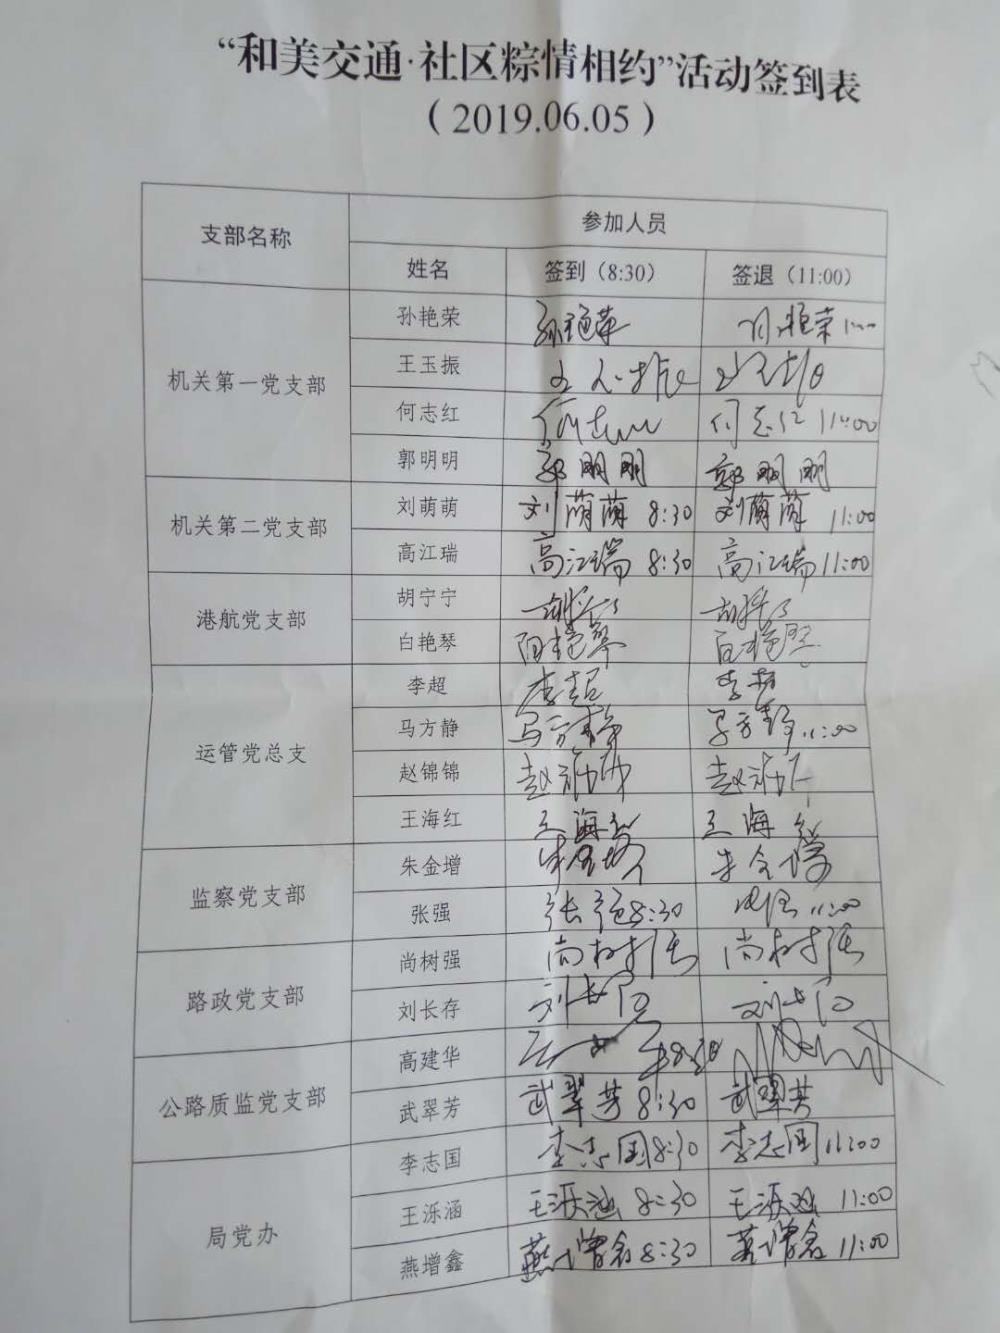 “和美交通·社区粽情相约”活动签到表
（2019.06.05）
支部名称 参加人员
姓名 签到（8:30） 签退（11:00）
机关第一党支部
孙艳荣 孙艳荣
王玉振
何志红 11:00
郭明明 郭明明 郭明明
机关第二党支部
刘萌萌 刘萌萌 8:30 刘萌萌 11:00
高江瑞 高江瑞 8:30 高江瑞 11:00
港航党支部
胡宁宁
白艳琴 白艳琴 白艳琴
运管党总支
李超 李超 李超
马方静 马方静 马方静 11:00
赵锦锦 赵锦锦 赵锦锦
王海红 王海红 王海红
监察党支部
朱金增 朱金增 朱金增
张强 张强 8:30 张强 11:00
路政党支部
尚树强 尚树强 尚树强
刘长存 刘长存 刘长存
公路质监党支部
高建华 8:30
武翠芳 武翠芳 8:30 武翠芳
局党办
李志国 李志国 8:30 李志国 11:00
王泺涵 王泺涵 8:30 王泺涵 11:00
燕增鑫 燕增鑫 8:30 燕增鑫 11:00